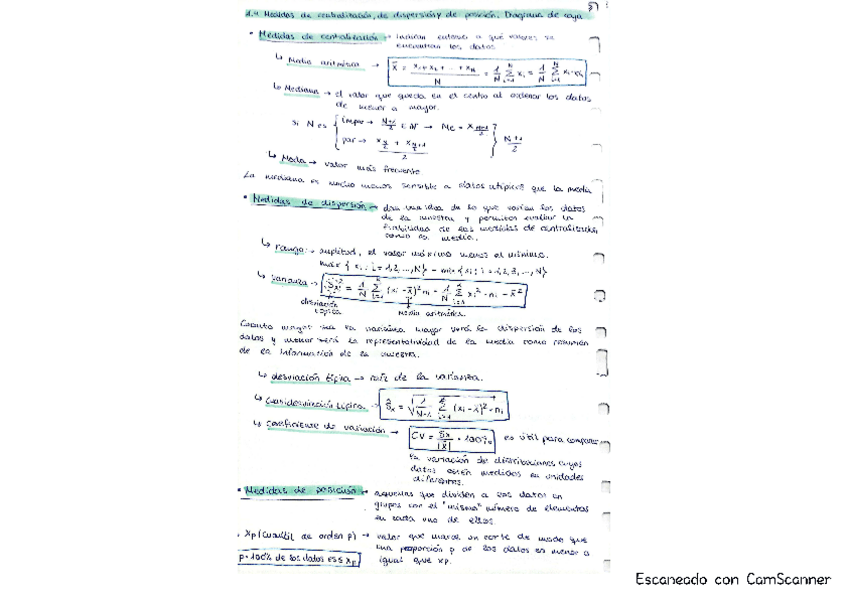 1.4 Medidas de centralización, de dispersión y de posición. Diagrama de caja
• Medidas de centralización → indican entorno a qué valores se
encuentran los datos
↳ Media aritmética → x̄ = (x₁+x₂+...+x_N)/N = 1/N Σ xᵢ = 1/N Σ xᵢ·nᵢ
↳ Mediana → el valor que queda en el centro al ordenar los datos
de menor a mayor.
si N es { impar → (N+1)/2 ∈ N → Me = x_(N+1)/2
par → (x_N/2 + x_N/2+1)/2 } (N+1)/2
↳ Moda → valor más frecuente
La mediana es mucho menos sensible a datos atípicos que la media
• Medidas de dispersión → dan medida de lo que varían los datos
de la muestra y permiten evaluar la
fiabilidad de las medidas de centralización
como es media.
↳ rango → amplitud, el valor máximo menos el mínimo.
máx { xᵢ : i = 1,2,...,N} - mín {xᵢ : i = 1,2,3,...,N}
↳ varianza → Sx² = 1/N Σ (xᵢ - x̄)² nᵢ = 1/N Σ xᵢ² · nᵢ - x̄²
desviación
típica
media aritmética
Cuanto mayor sea la varianza mayor será la dispersión de los
datos y menor será la representatividad de la media como resumen
de la información de la muestra.
↳ desviación típica → raíz de la varianza.
↳ Cuasidesviación típica → Ŝx = √(1/(N-1) Σ (xᵢ - x̄)² · nᵢ)
↳ Coeficiente de variación → CV = Sx/|x̄| · 100% es útil para comparar
la variación de distribuciones cuyos
datos estén medidos en unidades
diferentes.
• Medidas de posición → aquellas que dividen a los datos en
grupos con el "mismo" número de elementos
en cada uno de ellos
• Xp (cuantil de orden p) → valor que marca un corte de modo que
una proporción p de los datos es menor o
igual que xp.
p · 100% de los datos es ≤ xp
Escaneado con CamScanner